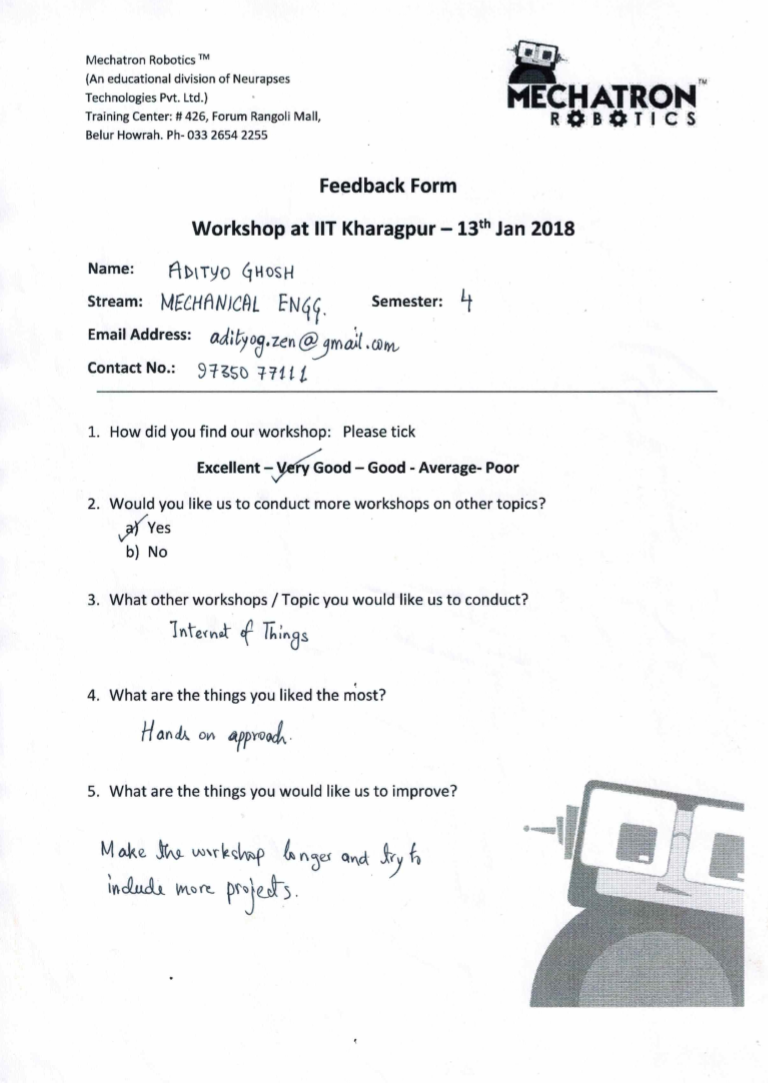 Mechatron Robotics ™
(An educational division of Neurapses
Technologies Pvt. Ltd.)
Training Center: # 426, Forum Rangoli Mall,
Belur Howrah. Ph- 033 2654 2255
MECHATRON™
ROBOTICS
Feedback Form
Workshop at IIT Kharagpur – 13th Jan 2018
Name: ADITYO GHOSH
Stream: MECHANICAL ENGG. Semester: 4
Email Address: adityog.zen@gmail.com
Contact No.: 97350 77111
1. How did you find our workshop: Please tick
Excellent – Very Good – Good - Average- Poor
2. Would you like us to conduct more workshops on other topics?
a) Yes
b) No
3. What other workshops / Topic you would like us to conduct?
Internet of Things
4. What are the things you liked the most?
Hands on approach.
5. What are the things you would like us to improve?
Make the workshop longer and try to
include more projects.